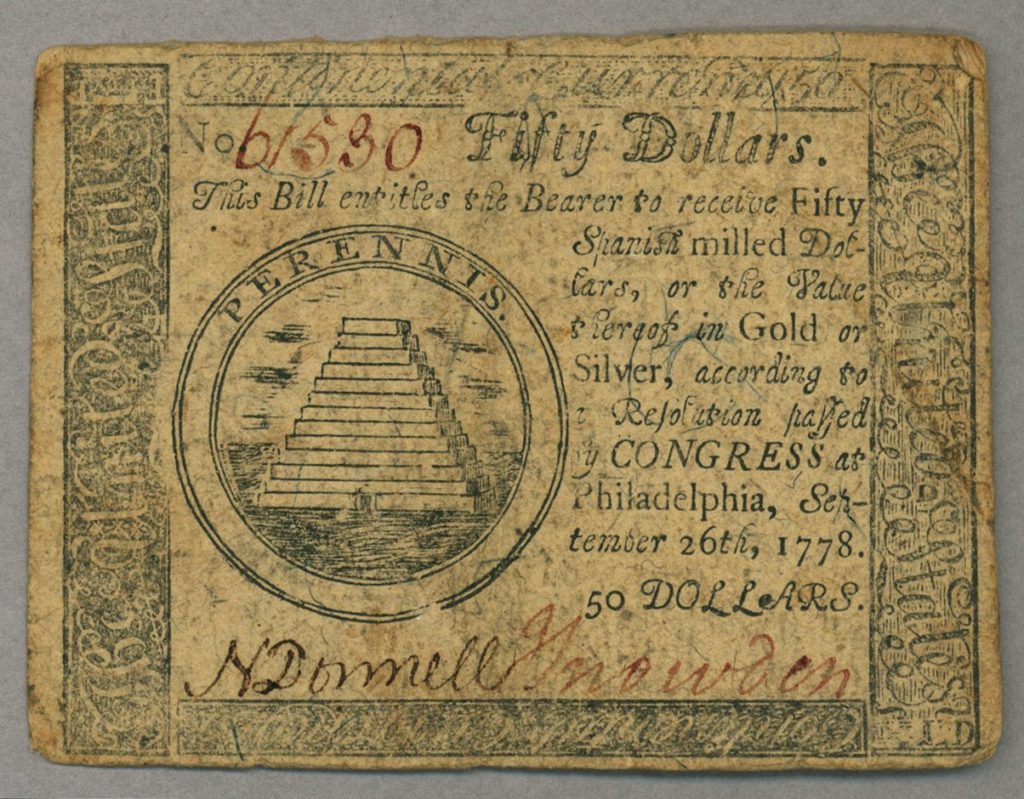 Continental Currency 50
No 61530 Fifty Dollars.
This Bill entitles the Bearer to receive Fifty
Spanish milled Dol-
lars, or the Value
thereof in Gold or
Silver, according to
a Reſolution paſſed
by CONGRESS at
Philadelphia, Sep-
tember 26th, 1778.
50 DOLLARS.
PERENNIS.
N Donnell J Snowden